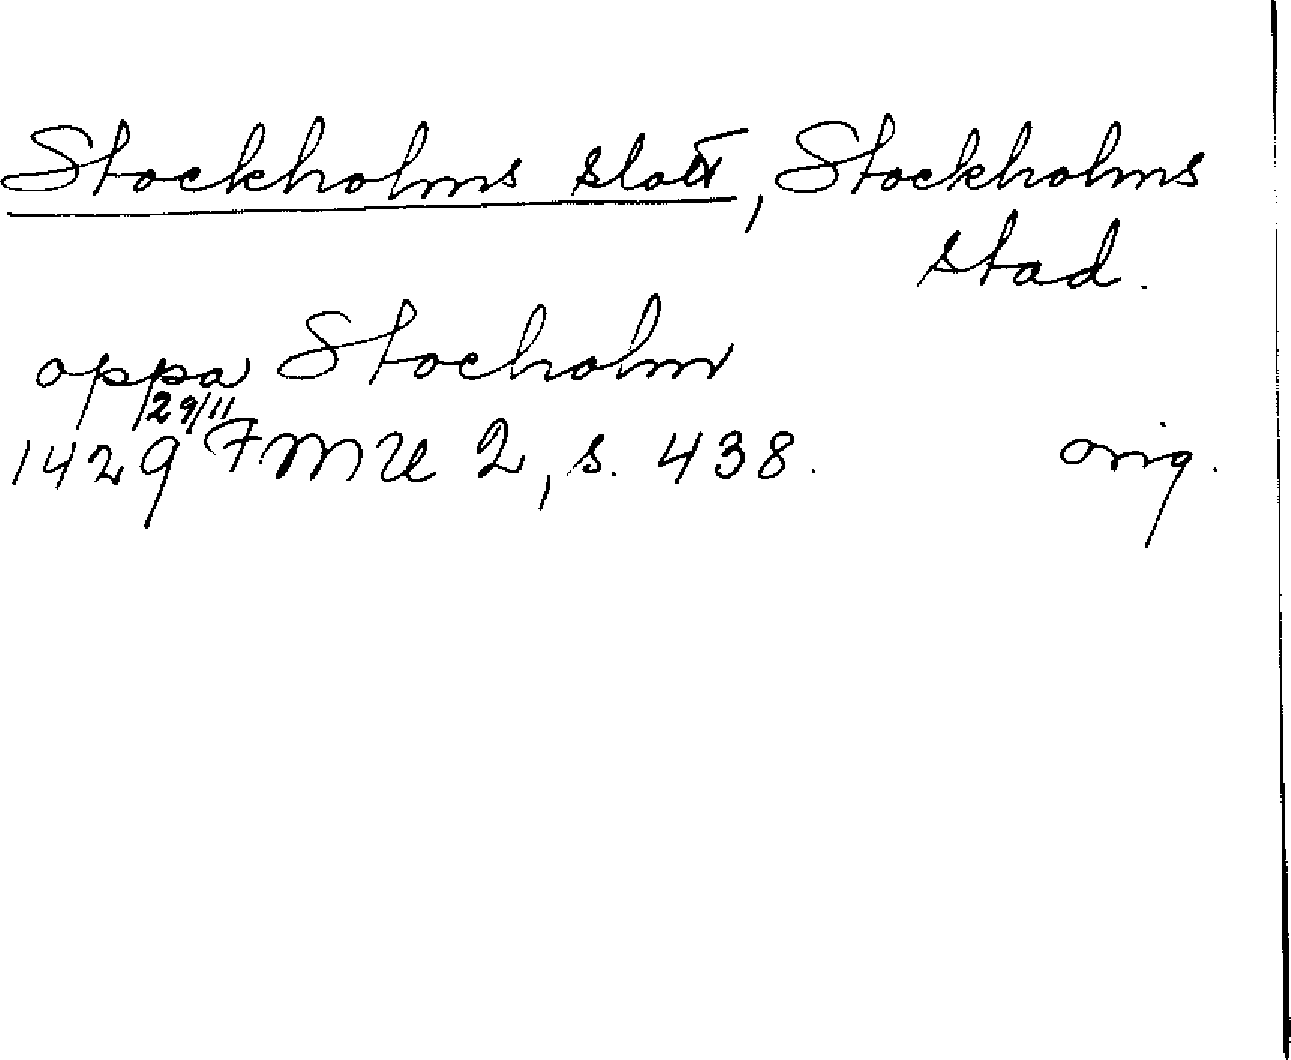 Stockholms slott, Stockholms
stad.
oppa Stocholm
29/11
1429 FMU 2, s. 438. orig.